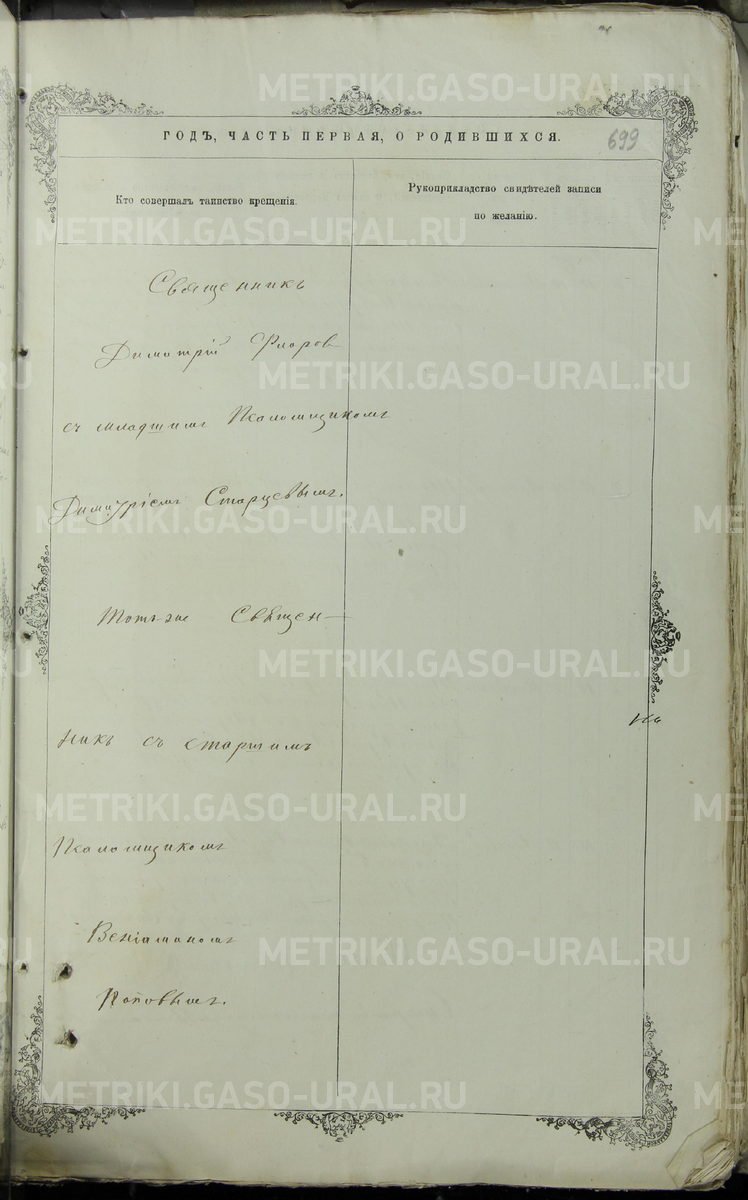 ГОДЪ, ЧАСТЬ ПЕРВАЯ, О РОДИВШИХСЯ.
699
Кто совершалъ таинство крещенія.
Рукоприкладство свидѣтелей записи
по желанію.
Священникъ
Димитрій Флоров
съ младшимъ Псаломщикомъ
Димитріемъ Старцевымъ.
Тотъ-же Священ-
никъ съ старшимъ
Псаломщикомъ
Веніаминомъ
Поповымъ.
METRIKI.GASO-URAL.RU